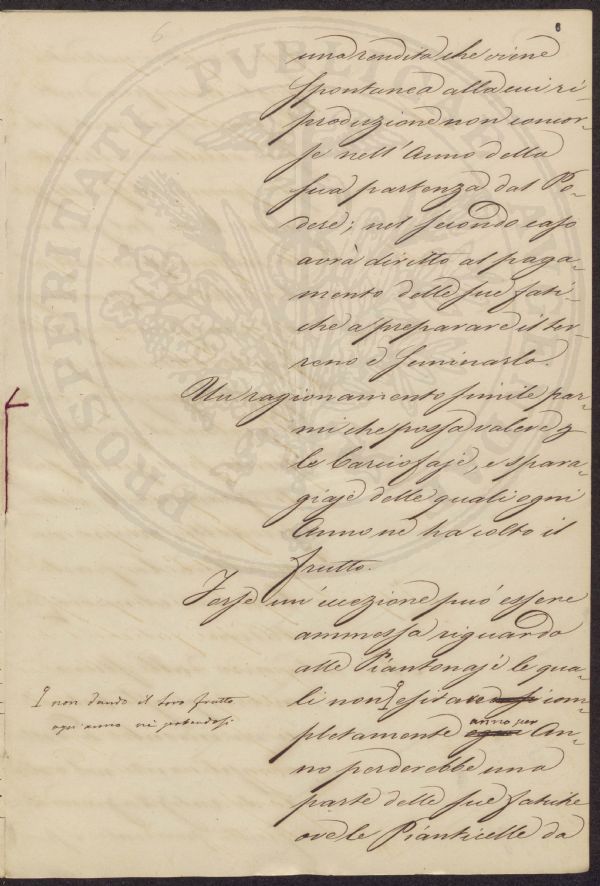 6
una rendita che viene
spontanea alla cui ri-
produzione non concor-
se nell'Anno della
sua partenza dal Po-
dere; nel secondo caso
avrà diritto al paga-
mento delle sue fati-
che a preparare il ter-
reno e seminarlo.
Un ragionamento simile par-
mi che possa valere p
le Carciofaje, e spara-
giaje delle quali ogni
Anno ne ha colto il
frutto.
Forse un'eccezione può essere
ammessa riguardo
alle Piantonaje le qua-
li non esitare si com-
pletamente ogni anno per An-
no perderebbe una
parte delle sue fatiche
ove le Pianticelle da
non dando il loro frutto
ogni anno nè potendosi
PROSPERITATI PVBLICAE AVGENDAE